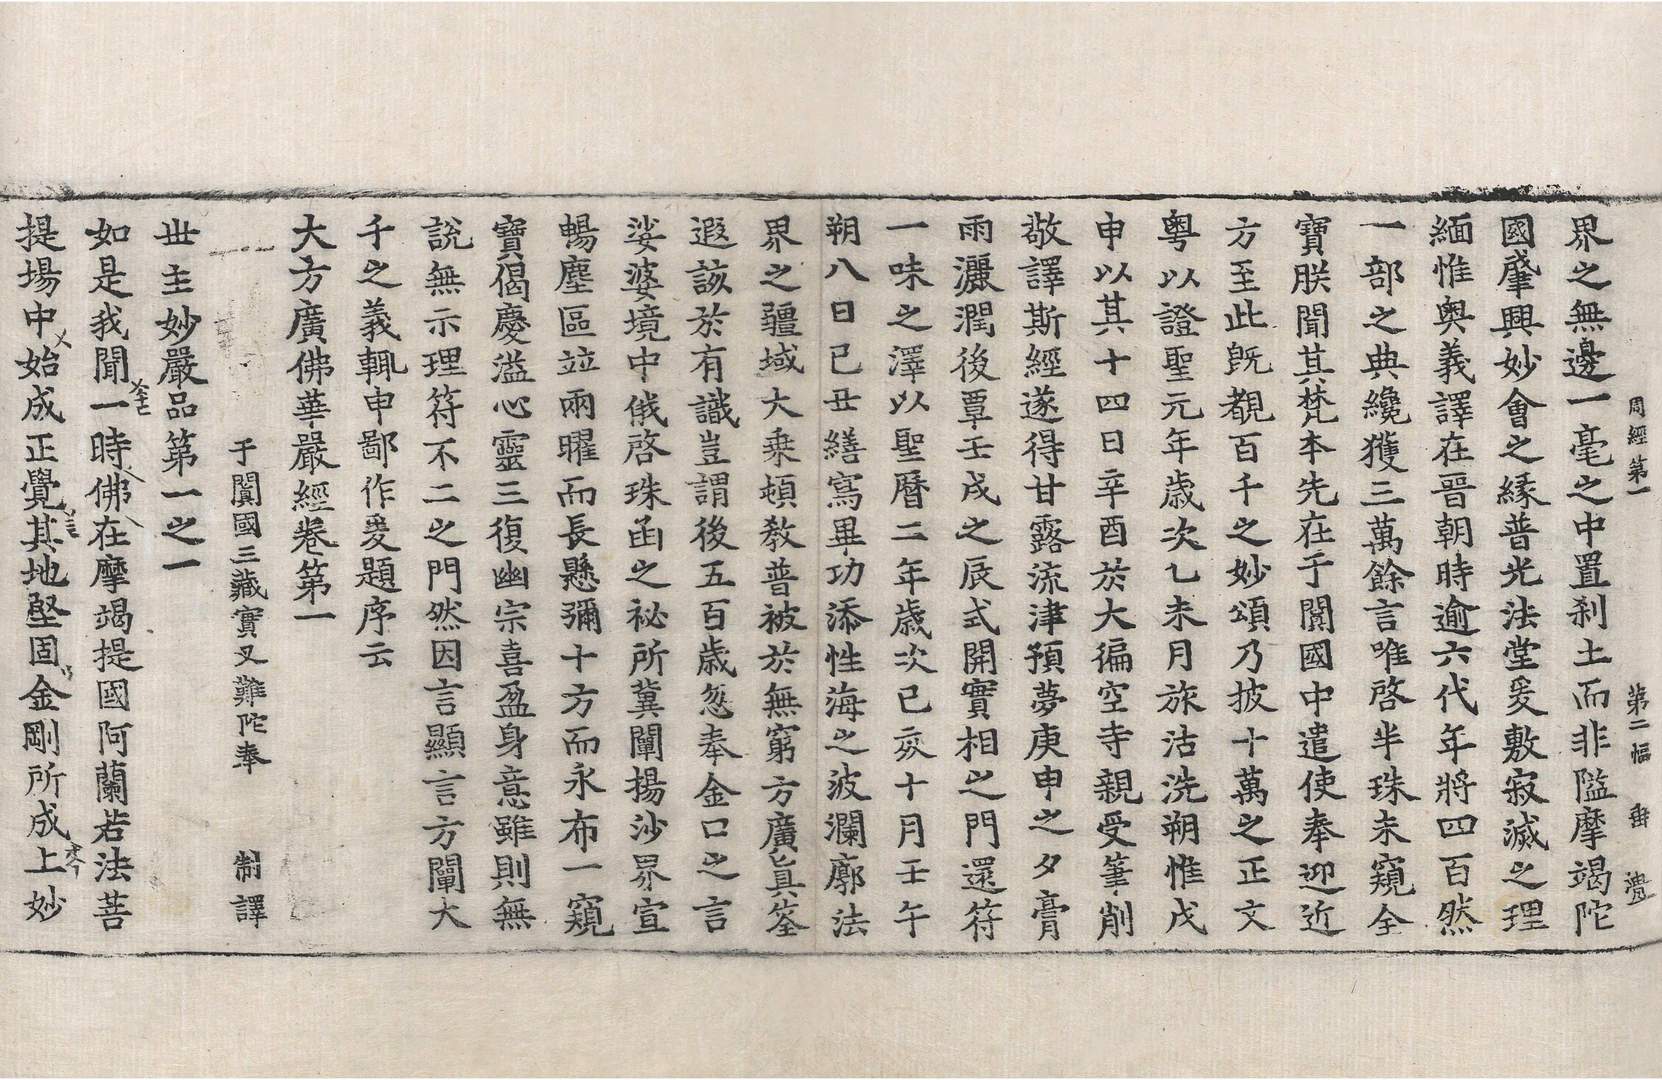 周經第一　第二幅
界之無邊一毫之中置刹土而非隘摩竭陀
國肇興妙會之緣普光法堂爰敷寂滅之理
緬惟奧義譯在晉朝時逾六代年將四百然
一部之典纔獲三萬餘言唯啓半珠未窺全
寶朕聞其梵本先在于闐國中遣使奉迎近
方至此旣覩百千之妙頌乃披十萬之正文
粤以證聖元年歲次乙未月旅沽洗朔惟戊
申以其十四日辛酉於大徧空寺親受筆削
敬譯斯經遂得甘露流津預夢庚申之夕膏
雨灑潤後覃壬戌之辰式開實相之門還符
一味之澤以聖曆二年歲次己亥十月壬午
朔八日己丑繕寫畢功添性海之波瀾廓法
界之疆域大乘頓教普被於無窮方廣眞筌
遐該於有識豈謂後五百歲忽奉金口之言
娑婆境中俄啓珠函之祕所冀闡揚沙界宣
暢塵區竝兩曜而長懸彌十方而永布一窺
寶偈慶溢心靈三復幽宗喜盈身意雖則無
說無示理符不二之門然因言顯言方闡大
千之義輒申鄙作爰題序云
大方廣佛華嚴經卷第一
于闐國三藏實叉難陀奉　制譯
世主妙嚴品第一之一
如是我聞一時佛在摩竭提國阿蘭若法菩
提場中始成正覺其地堅固金剛所成上妙